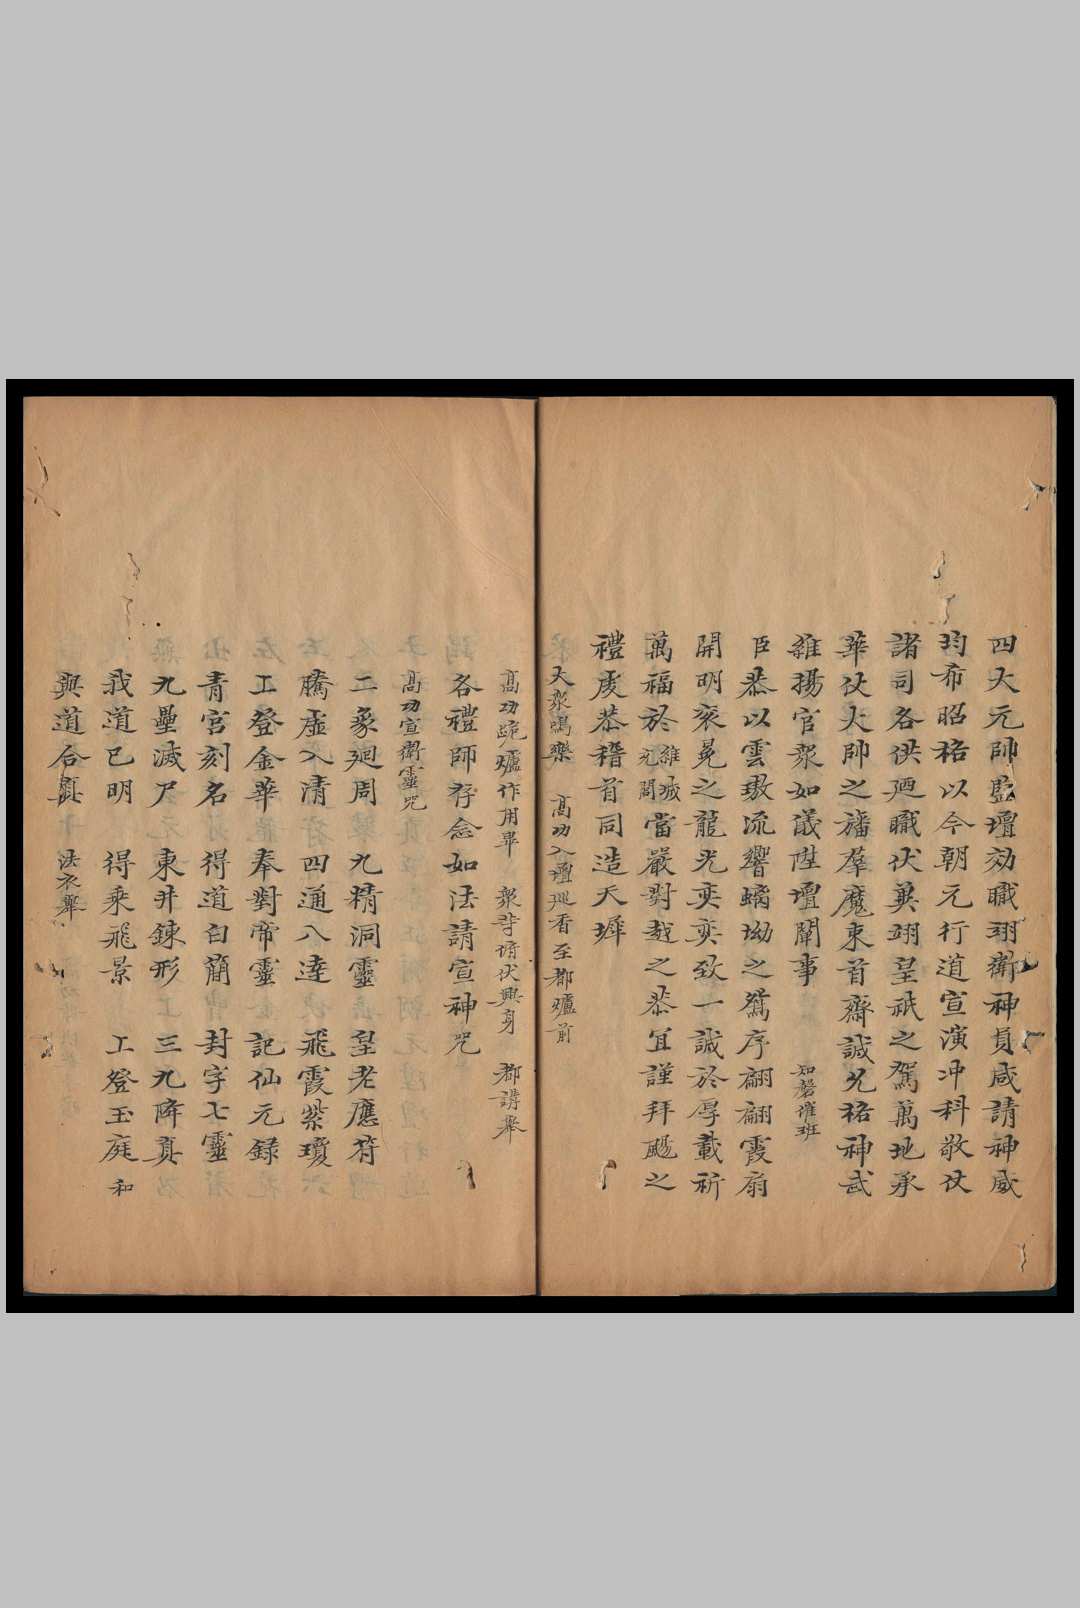 四大元帥監壇効職翊衛神員咸請神威
均希昭格以今朝元行道宣演冲科敬仗
諸司各供廼職伏冀翊皇祇之駕萬地承
華仗大帥之旛羣魔束首齋誠允格神武
維揚官衆如儀陞壇闡事 知磬催班
臣恭以雲璈流響螭坳之鵷序翩翩霞扇
開明衮冕之龍光奕奕致一誠於厚載祈
萬福於維城允關當嚴對越之恭宜謹拜颺之
禮虔恭稽首同造天墀
大衆鳴樂 高功入壇巡香至都爐前
高功跪爐作用畢 衆官俯伏興身 都講舉
各禮師存念如法請宣神咒
高功宣衛靈咒
二象廻周 九精洞靈 皇老應符
騰虛入清 四通八達 飛霞紫瓊
上登金華 奉對帝靈 記仙元錄
青宮刻名 得道白簡 封字七靈
九壘滅尸 東井鍊形 三九降真
我道已明 得乘飛景 上登玉庭 和
與道合真 法衣舉